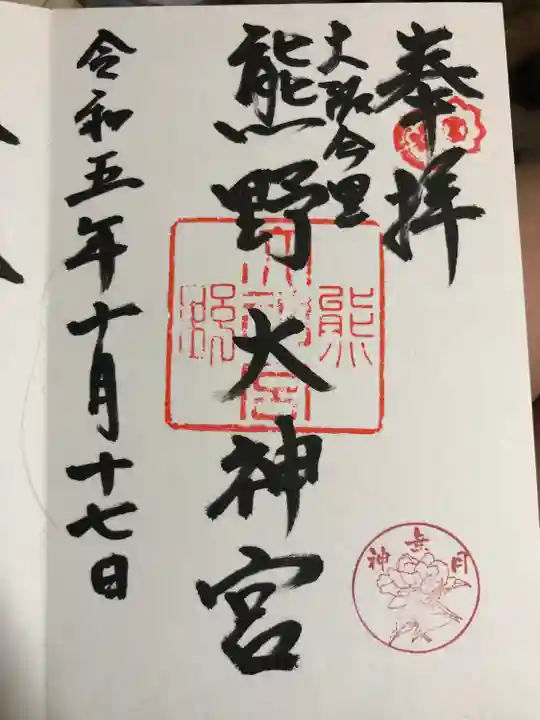 奉拝
大阪今里
熊野大神宮
令和五年十月十七日
熊野
大神宮
神無月